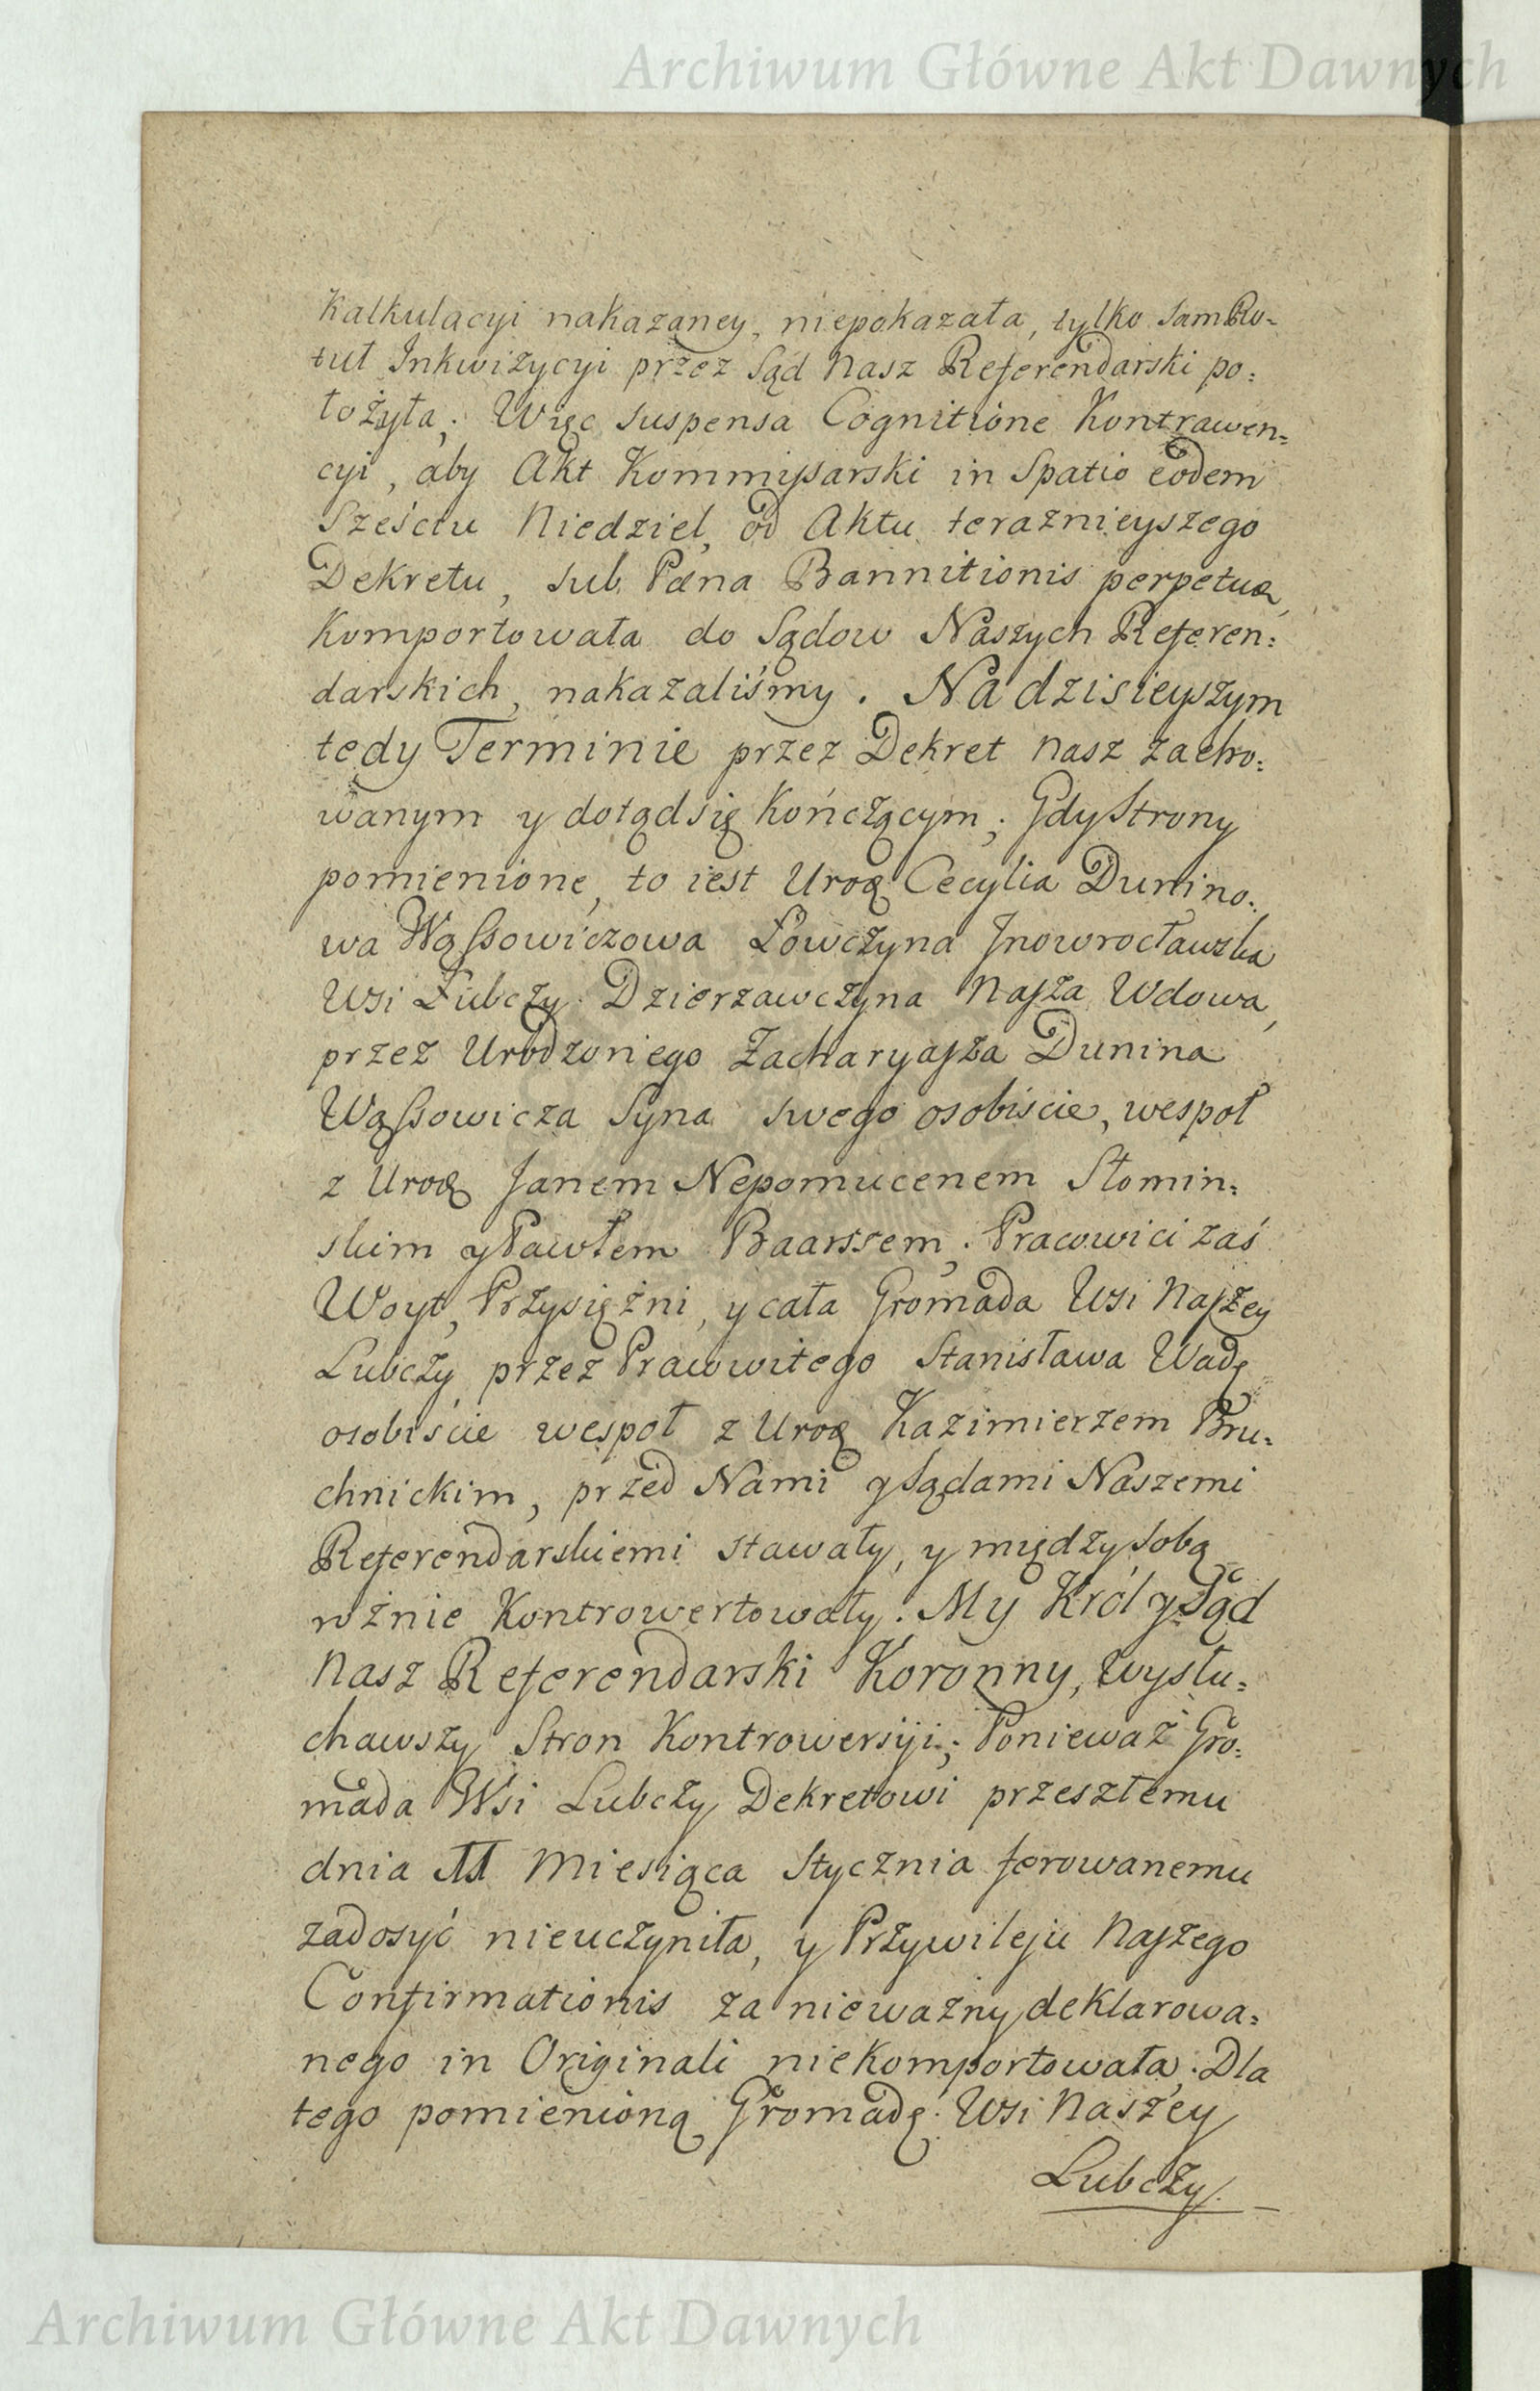 Archiwum Główne Akt Dawnych
Kalkulacyi nakazaney, niepokazała, tylko sam Ro=
tuł Inkwizycyi przez Sąd Nasz Referendarski po=
łożyła; Więc suspensa Cognitione Kontrawen=
cyi, aby Akt Kommissarski in Spatio eodem
Sześciu Niedziel, od Aktu teraznieyszego
Dekretu, sub Pœna Bannitionis perpetuæ,
Komportowała do Sądow Naszych Referen=
darskich, nakazaliśmy. Na dzisieyszym
tedy Terminie przez Dekret Nasz zacho=
wanym y dotąd się Kończącym; Gdy Strony
pomienione, to iest Urod Cecylia Dunino=
wa Wąssowiczowa Łowczyna Jnowrocławska
Wsi Łubczy Dzierzawczyna Nasza Wdowa,
przez Urodzonego Zacharyasza Dunina
Wąssowicza Syna swego osobiście, wespoł
z Urod Janem Nepomucenem Słomin=
skim y Pawłem Baarssem; Pracowici zaś
Woyt, Przysiężni, y cała Gromada Wsi Naszey
Lubczy przez Pracowitego Stanisława Wadę
osobiście wespoł z Urod Kazimierzem Bru=
chnickim, przed Nami y Sądami Naszemi
Referendarskiemi stawały, y między sobą
rożnie Kontrowertowały. My Król y Sąd
Nasz Referendarski Koronny, wysłu=
chawszy Stron Kontrowersyi; Ponieważ Gro=
mada Wsi Lubczy Dekretowi przeszłemu
dnia 11 Miesiąca Stycznia ferowanemu
zadosyć nieuczyniła, y Przywileju Naszego
Confirmationis za nieważny deklarowa=
nego in Originali niekomportowała; Dla
tego pomienioną Gromadę Wsi Naszey
Lubczy.
Archiwum Główne Akt Dawnych